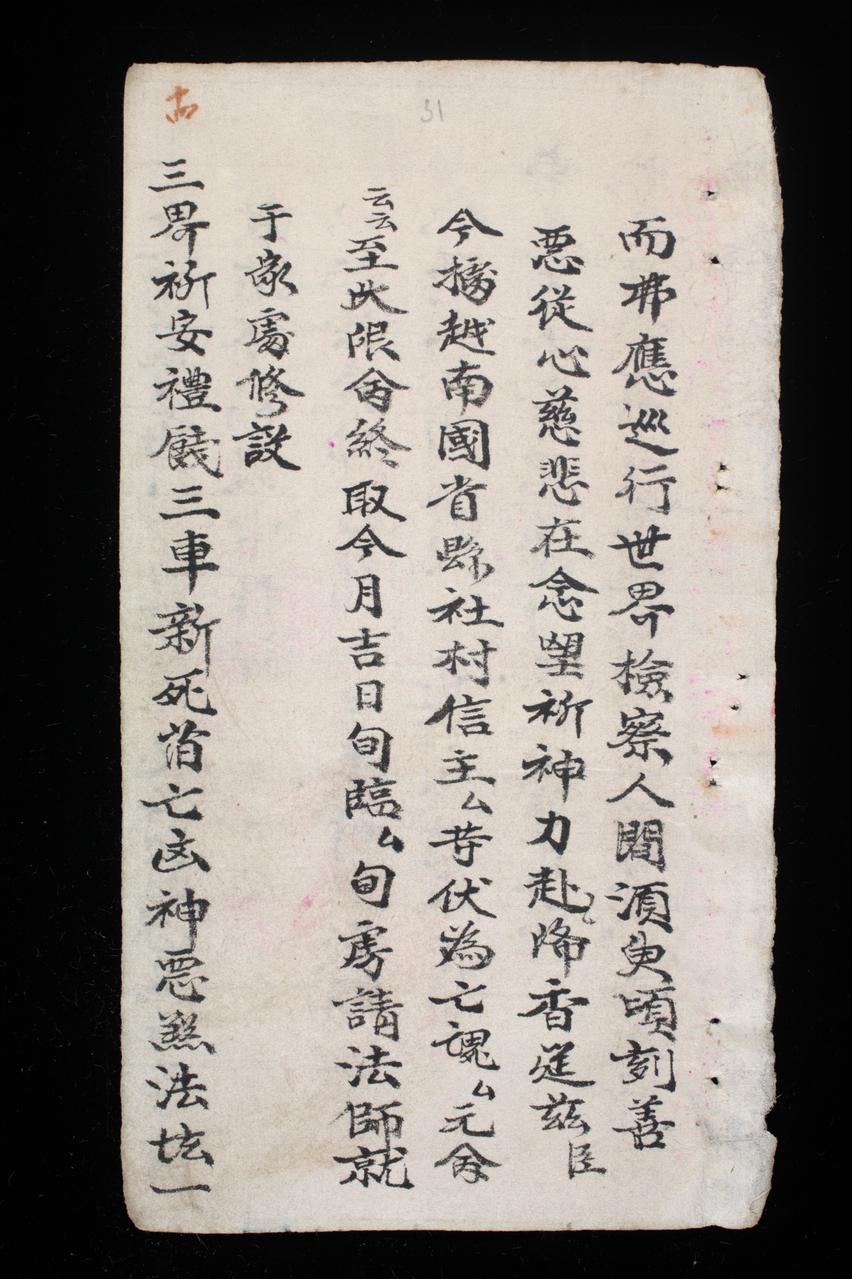 31
而弗應巡行世界檢察人間須臾頃刻善
惡從心慈悲在念望祈神力赴降香筵茲臣
今據越南國省縣社村信主厶等伏為亡魂厶元命
云云至此限命終取今月吉日旬臨厶旬虔請法師就
于家處修設
三界祈安禮餞三車新死舊亡凶神惡煞法坛一